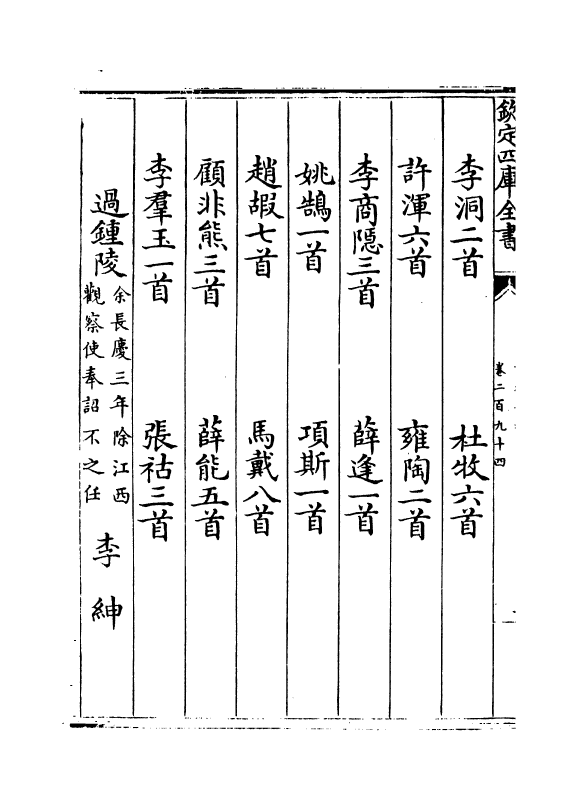 欽定四庫全書
卷二百九十四
李洞二首 杜牧六首
許渾六首 雍陶二首
李商隱三首 薛逢一首
姚鵠一首 項斯一首
趙嘏七首 馬戴八首
顧非熊三首 薛能五首
李羣玉一首 張祜三首
過鍾陵 余長慶三年除江西觀察使奉詔不之任 李紳